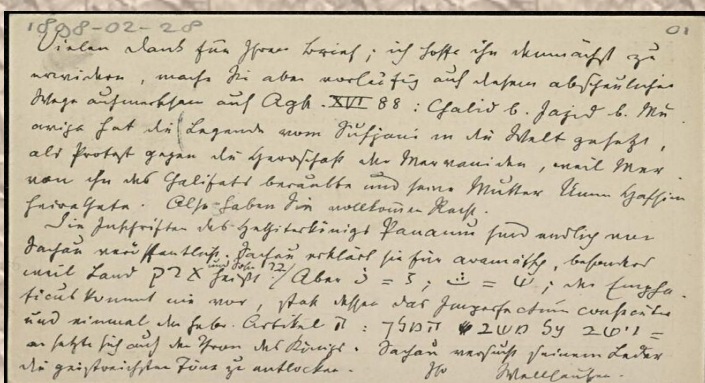 1898-02-28
01
Vielen Dank für Ihren Brief; ich hoffe ihn demnächst zu
erwidern, mache Sie aber vorläufig auf diesem abscheulichen
Wege aufmerksam auf Agh. XVI 88: Chalid b. Jazid b. Mu
avija hat die Legende vom Sufjani in die Welt gesetzt,
als Protest gegen die Herrschaft der Marvaniden, weil Mar
van ihn des Chalifats beraubte und seine Mutter Umm Haschim
heirathete. Also haben Sie vollkommen Recht.
Die Inschriften des Hethiterkönigs Panamu sind endlich von
Sachau veröffentlicht. Sachau erklärt sie für aramäisch, besonders
weil Land ארק heißt. Aber ; der Empha
ticus kommt nie vor, statt dessen das Imperfectum consecutiv
und einmal der hebr. Artikel ה :
er setzte sich auf den Thron des Königs. Sachau versucht seinem Leder
die geistreichsten Töne zu entlocken. Ihr Wellhausen.